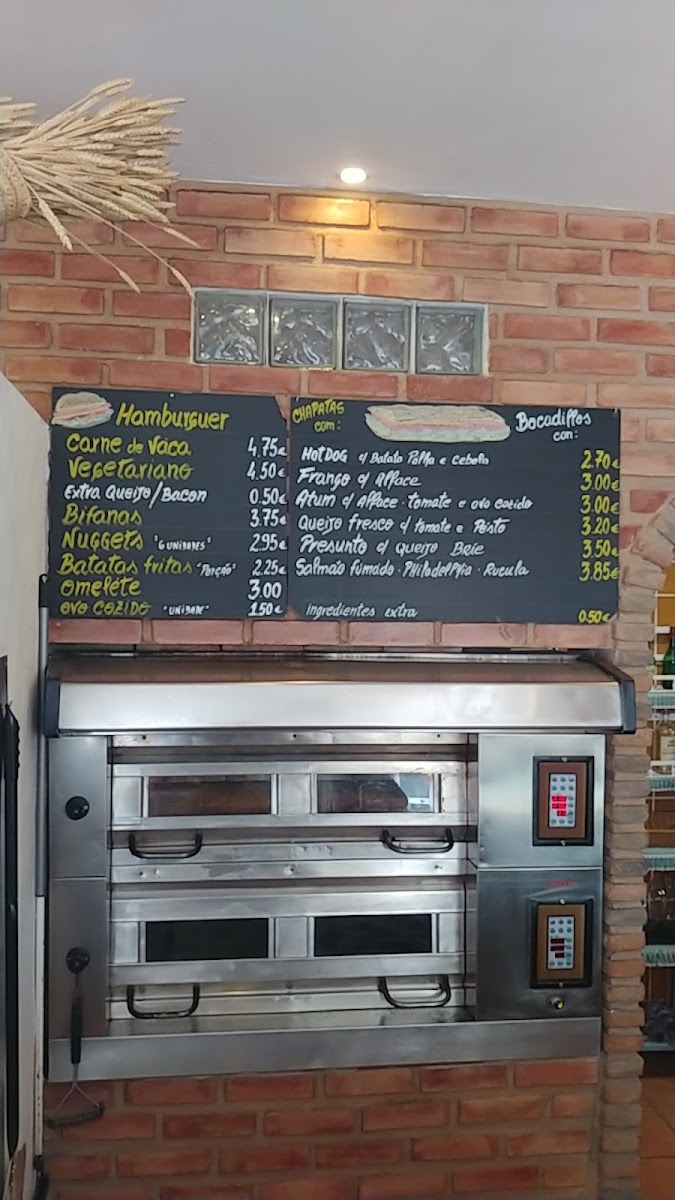 Hamburguer
Carne de Vaca 4.75€
Vegetariano 4.50€
Extra Queijo/Bacon 0.50€
Bifanas 3.75€
Nuggets "6 unidades" 2.95€
Batatas fritas "Porção" 2.25€
omelete 3.00
ovo cozido "unidade" 1.50€
CHAPATAS
com:
Bocadillos
con:
HotDOG c/ Batata Palha e Cebola 2.70€
Frango c/ Alface 3.00€
Atum c/ Alface · tomate e ovo cozido 3.00€
Queijo fresco c/ tomate e Pesto 3.20€
Presunto c/ queijo Brie 3.50€
Salmão fumado · Philadelphia · Rucula 3.85€
ingredientes extra 0.50€